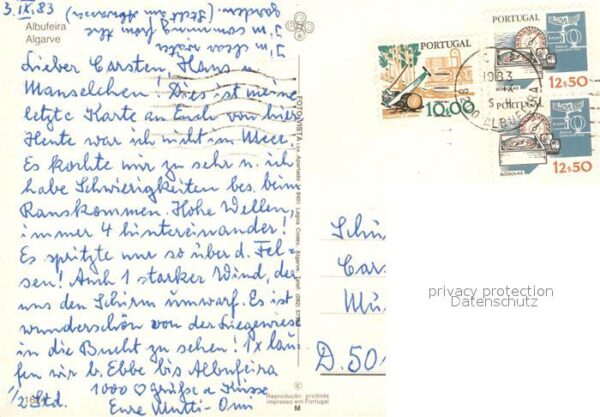 3.IX.83
Albufeira
Algarve
garden. (steht am
I'm coming from the
I'm clean water
Lieber Carsten, Hans u
Manselchen! Dies ist meine
letzte Karte an Euch von hier
Heute war ich nicht im Meer.
Es kochte mir zu sehr u. ich
habe Schwierigkeiten bes. beim
Rauskommen. Hohe Wellen,
immer 4 hintereinander!
Es spritzte nur so über d. Fel-
sen! Auch 1 starker Wind, der
uns den Schirm umwarf. Es ist
wunderschön von der Liegewiese
in die Bucht zu sehen! 1x lau-
fen wir b. Ebbe bis Albufeira
1/2 Std.
1000 Grüße u Küsse
Eure Mutti-Omi
FOTO-VISTA
Reprodução proibida
impresso em Portugal
M
PORTUGAL
10$00
PORTUGAL
12$50
BÚSSOLAS
PORTUGAL
12$50
BÚSSOLAS
1983
ALBUFEIRA
Schü
Cars
Mü
D.50
privacy protection
Datenschutz